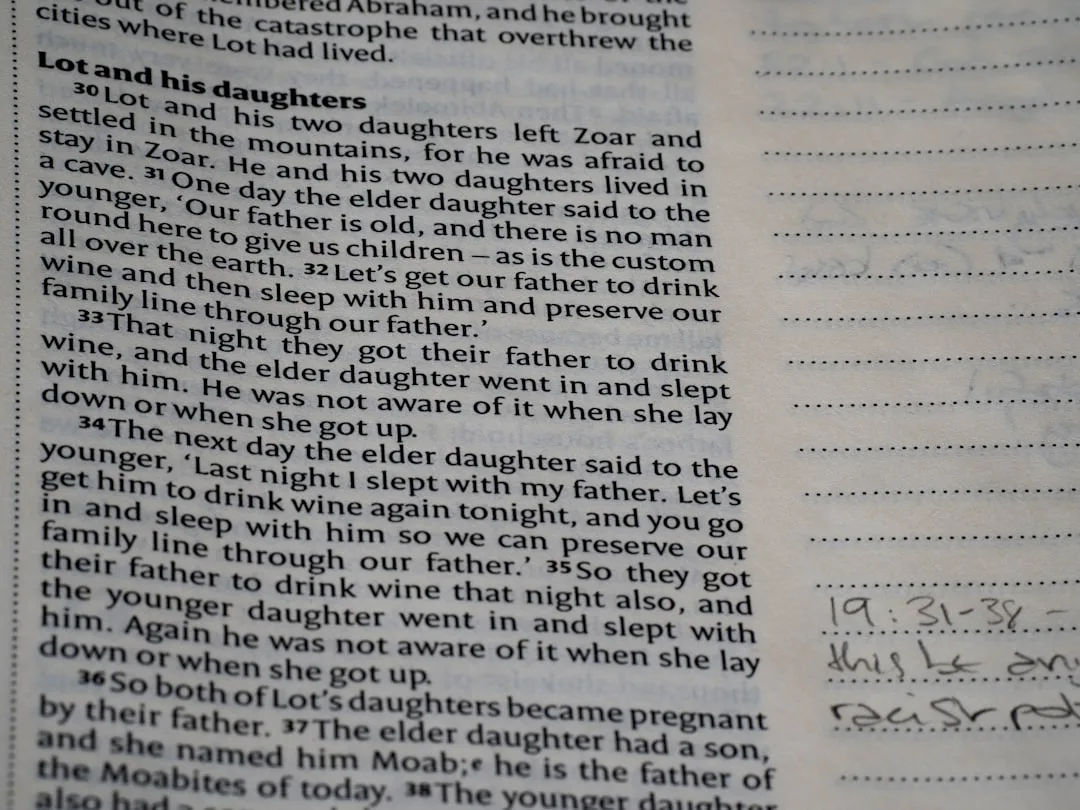 Abraham, and he brought
out of the catastrophe that overthrew the
cities where Lot had lived.
Lot and his daughters
30 Lot and his two daughters left Zoar and
settled in the mountains, for he was afraid to
stay in Zoar. He and his two daughters lived in
a cave. 31 One day the elder daughter said to the
younger, ‘Our father is old, and there is no man
round here to give us children – as is the custom
all over the earth. 32 Let’s get our father to drink
wine and then sleep with him and preserve our
family line through our father.’
33 That night they got their father to drink
wine, and the elder daughter went in and slept
with him. He was not aware of it when she lay
down or when she got up.
34 The next day the elder daughter said to the
younger, ‘Last night I slept with my father. Let’s
get him to drink wine again tonight, and you go
in and sleep with him so we can preserve our
family line through our father.’ 35 So they got
their father to drink wine that night also, and
the younger daughter went in and slept with
him. Again he was not aware of it when she lay
down or when she got up.
36 So both of Lot’s daughters became pregnant
by their father. 37 The elder daughter had a son,
and she named him Moab; e he is the father of
the Moabites of today. 38 The younger daughter
also had a
19:31-38 -
this be
racist